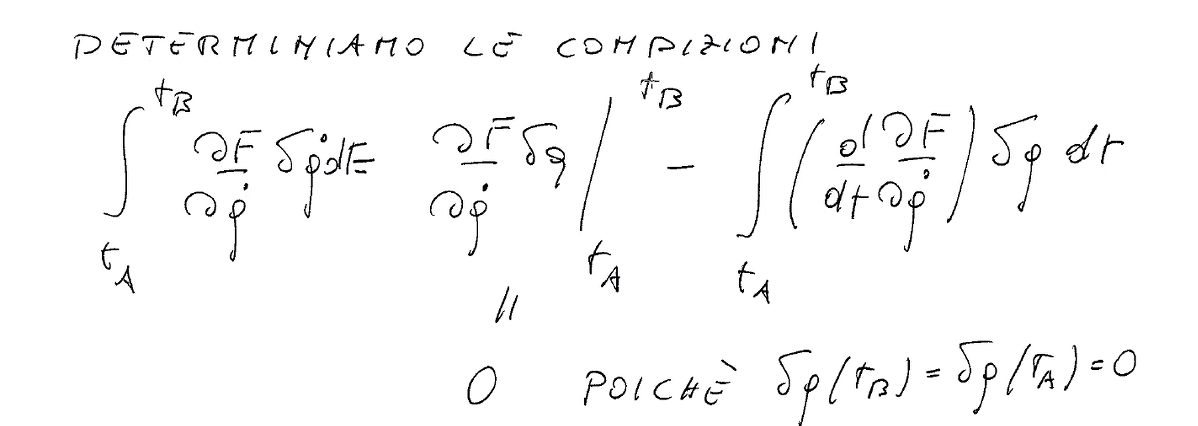 DETERMINIAMO LE CONDIZIONI
∫_{t_A}^{t_B} ∂F/∂q̇ δq̇ dt = ∂F/∂q̇ δq |_{t_A}^{t_B} − ∫_{t_A}^{t_B} (d/dt ∂F/∂q̇) δq dt
॥
0 POICHÈ δq(t_B) = δq(t_A) = 0